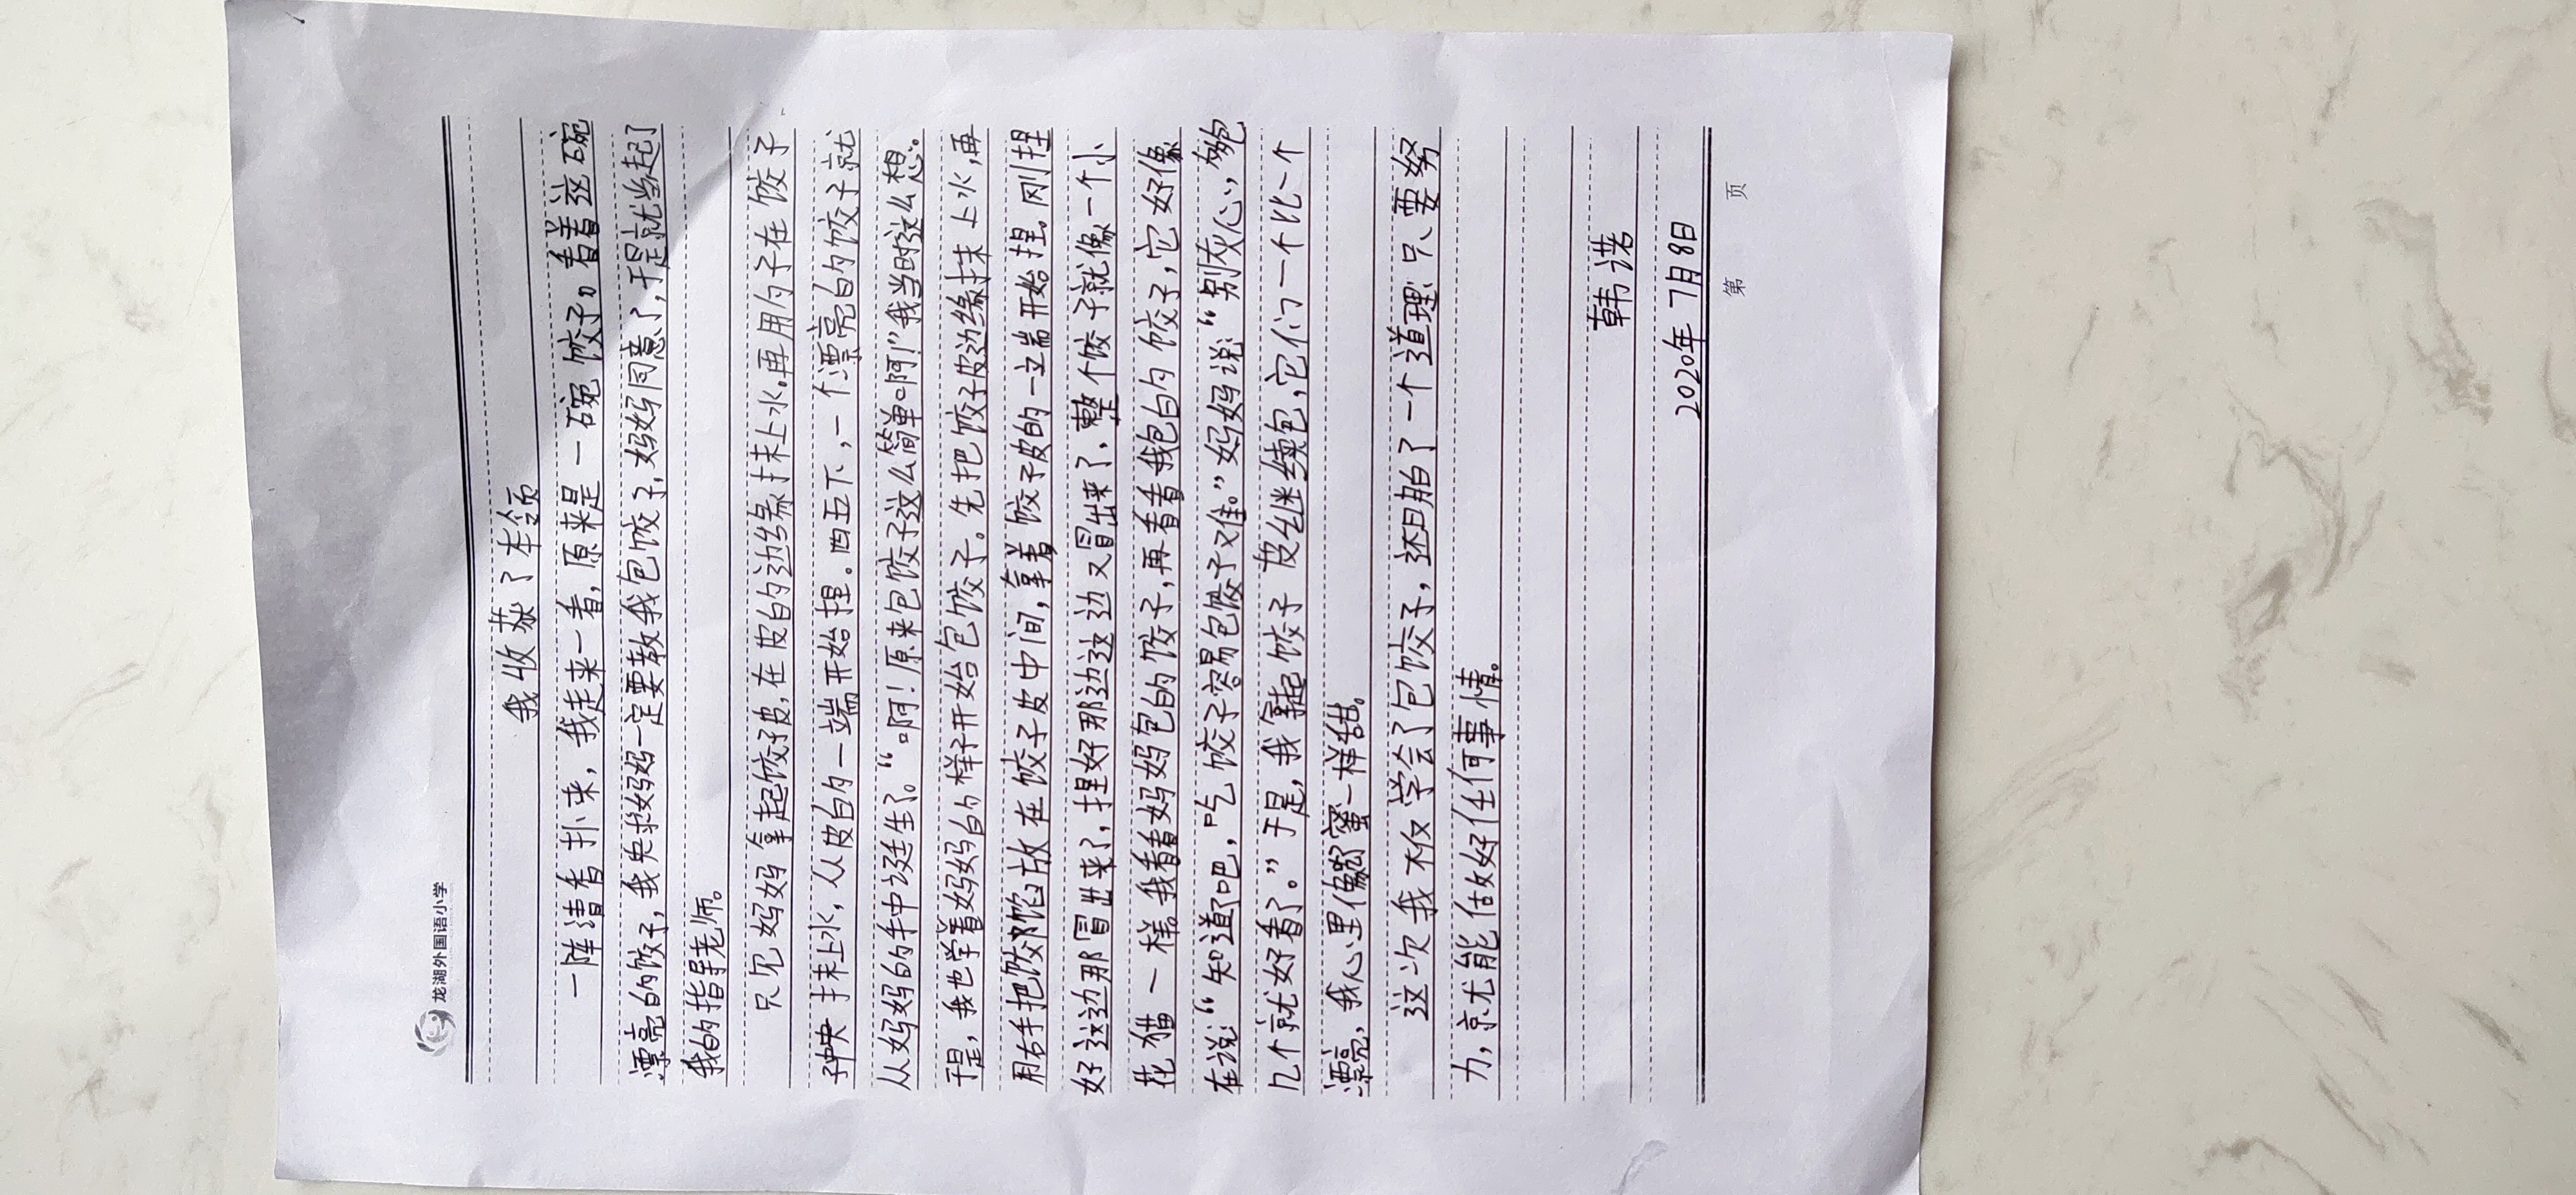 龙湖外国语小学
我收获了本领
一阵清香扑来，我走来一看，原来是一碗饺子。看着这碗
漂亮的饺子，我央求妈妈一定要教我包饺子，妈妈同意了，于是就当起了
我的指导老师。
只见妈妈拿起饺子皮，在皮的边缘抹上水。再用勺子在饺子
抹上水，从皮的一端开始捏。四五下，一个漂亮的饺子就
从妈妈的手中诞生了。“啊！原来包饺子这么简单啊！”我当时这么想。
于是，我也学着妈妈的样子开始包饺子。先把饺子皮边缘抹上水，再
用右手把饺子馅放在饺子皮中间，拿着饺子皮的一端开始捏。刚捏
好这边那冒出来了，捏好那边这边又冒出来了，整个饺子就像一个小
花猫一样。我看看妈妈包的饺子，再看看我包的饺子，它好像
在说：“知道了吧，吃饺子容易包饺子难。”妈妈说：“别灰心，多包
几个就好看了。”于是，我拿起饺子皮继续包，它们一个比一个
漂亮，我心里像吃了蜜一样甜。
这次我不仅学会了包饺子，还明白了一个道理：只要努
力，就能做好任何事情。
韩诺
2020年7月8日
第 页